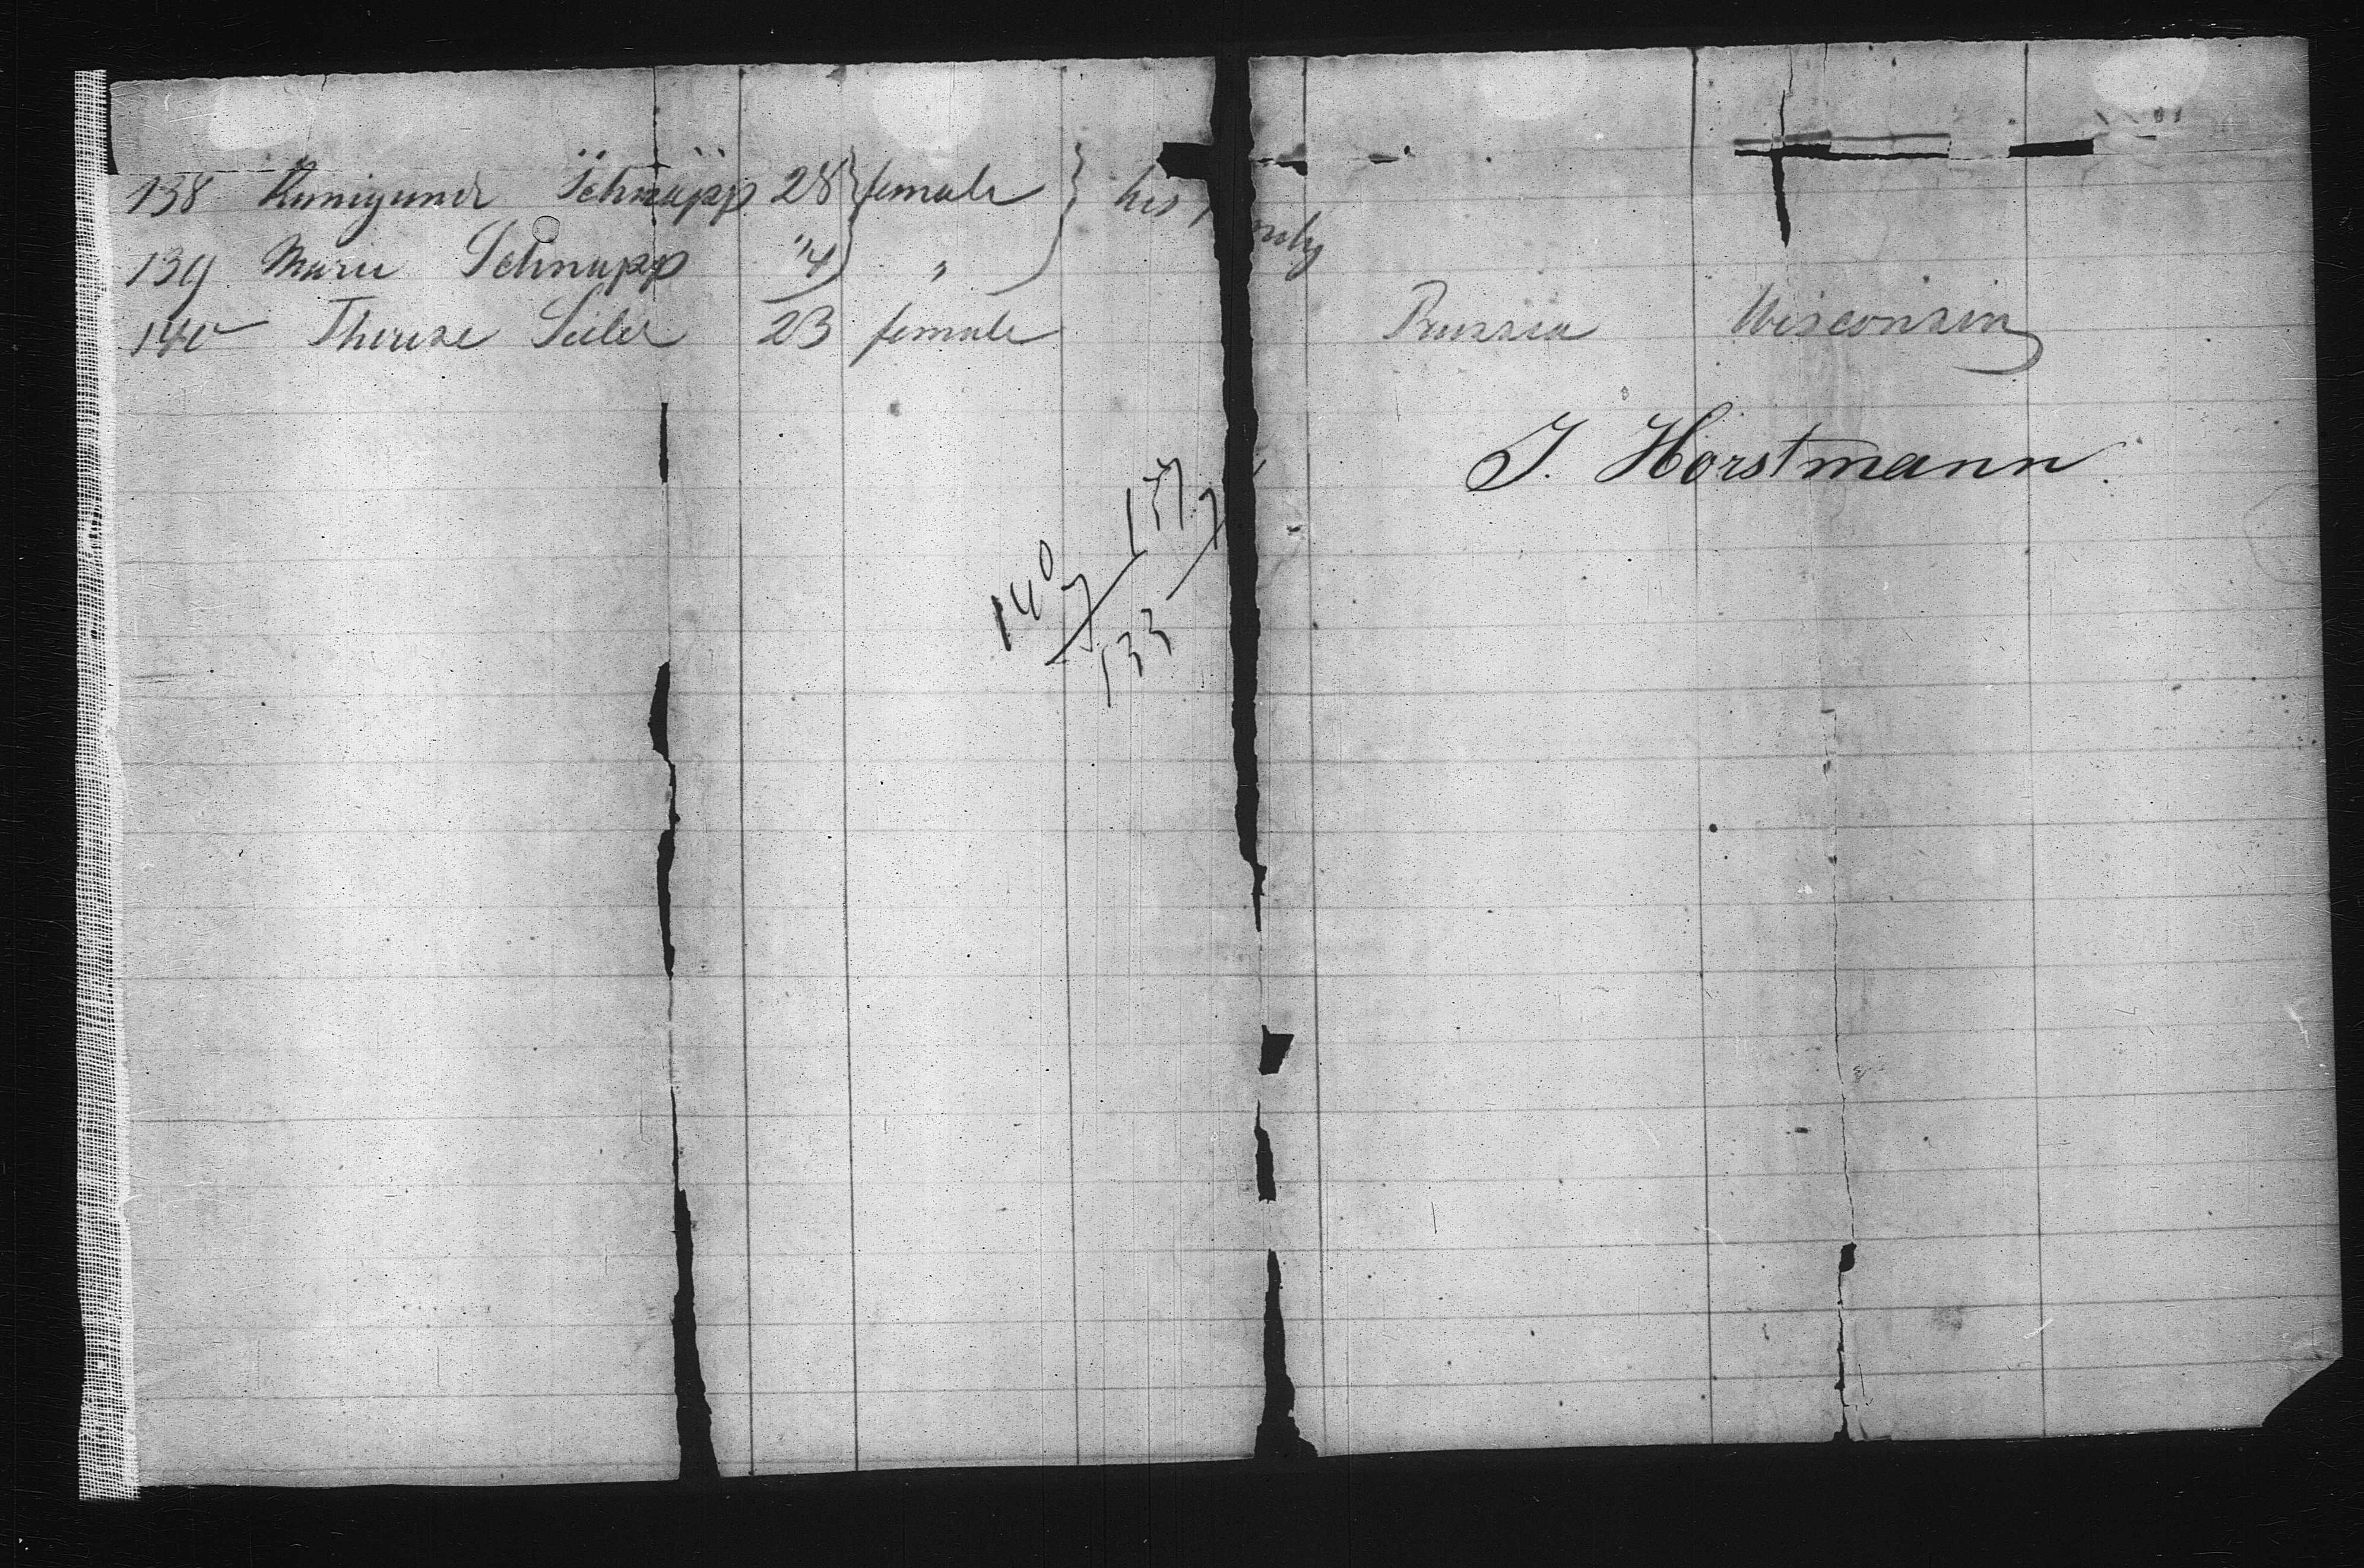 138 Kunigunde Schnupp 28 female his
139 Marie Schnupp "
140 Therese 23 female Prussia Wisconsin
J. Horstmann.
140
133